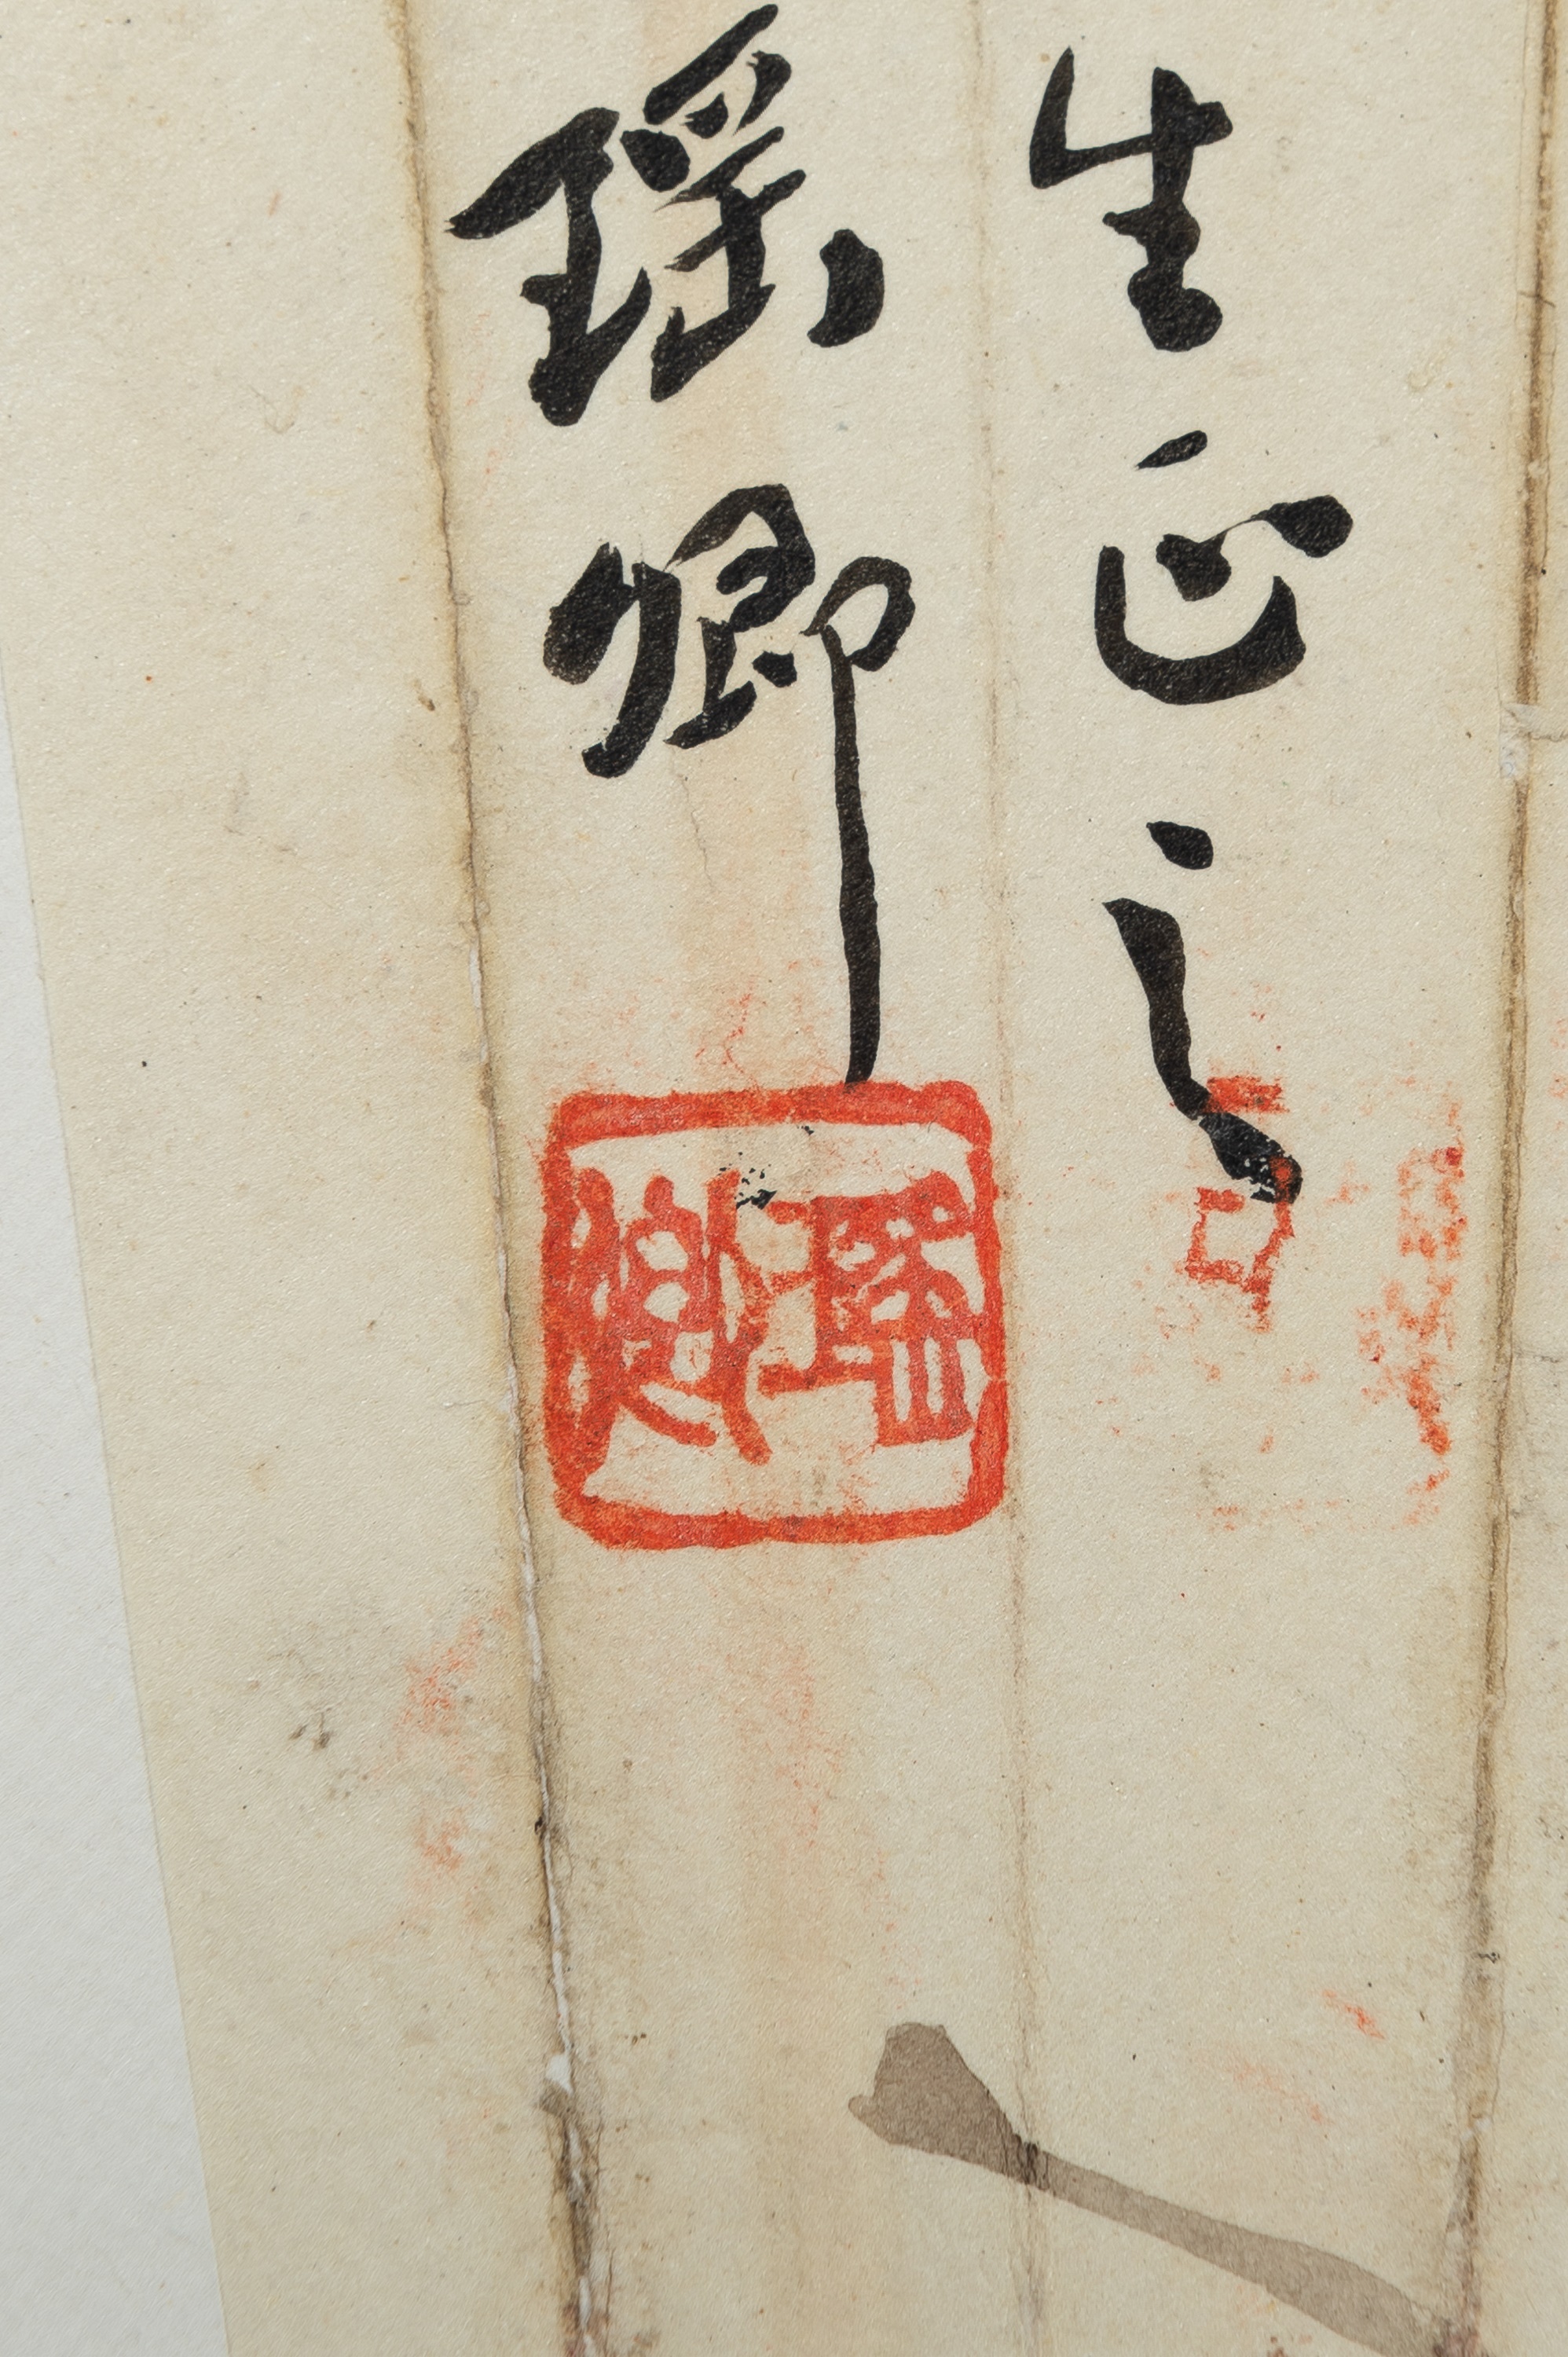 生正之
瑶卿
瑶卿